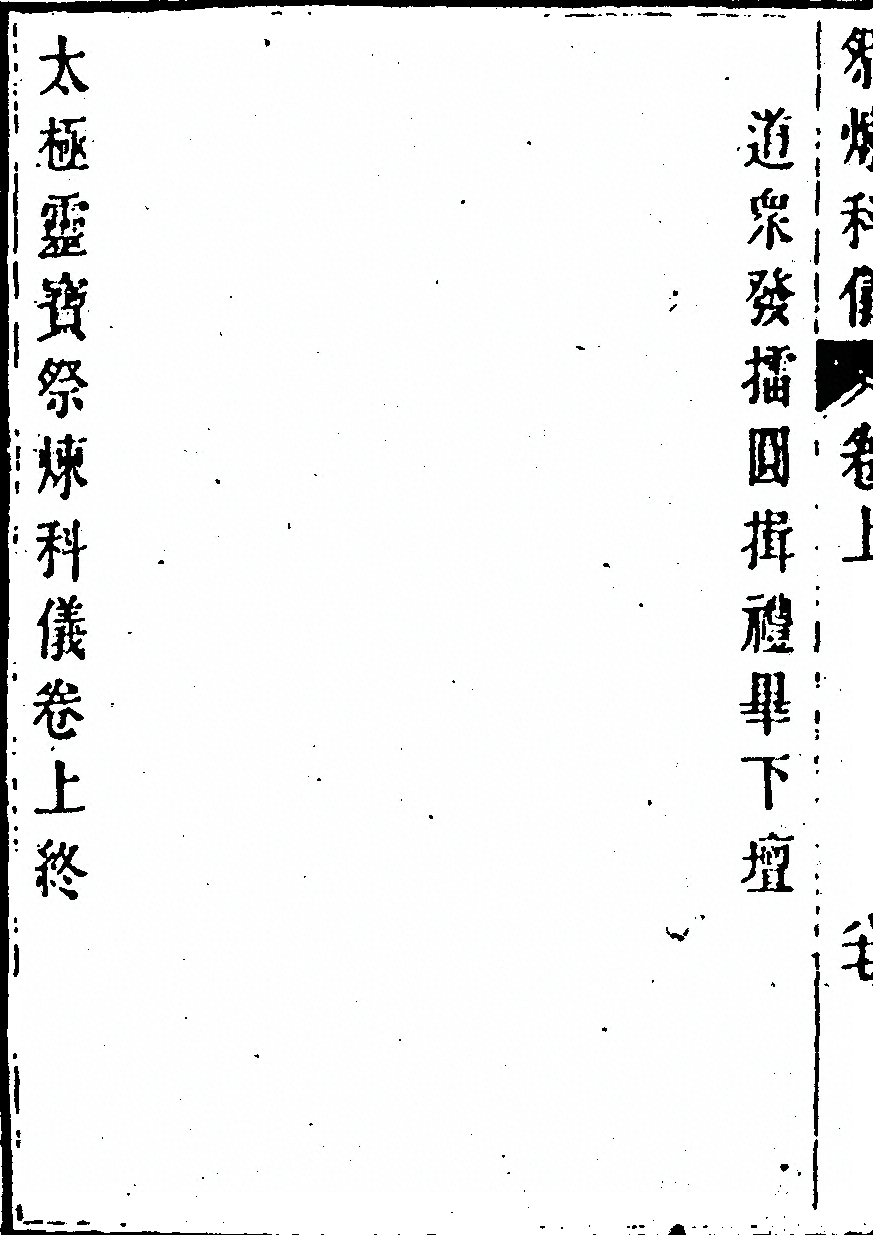 祭煉科儀 卷上
道衆發擂圓揖禮畢下壇
太極靈寶祭煉科儀卷上終